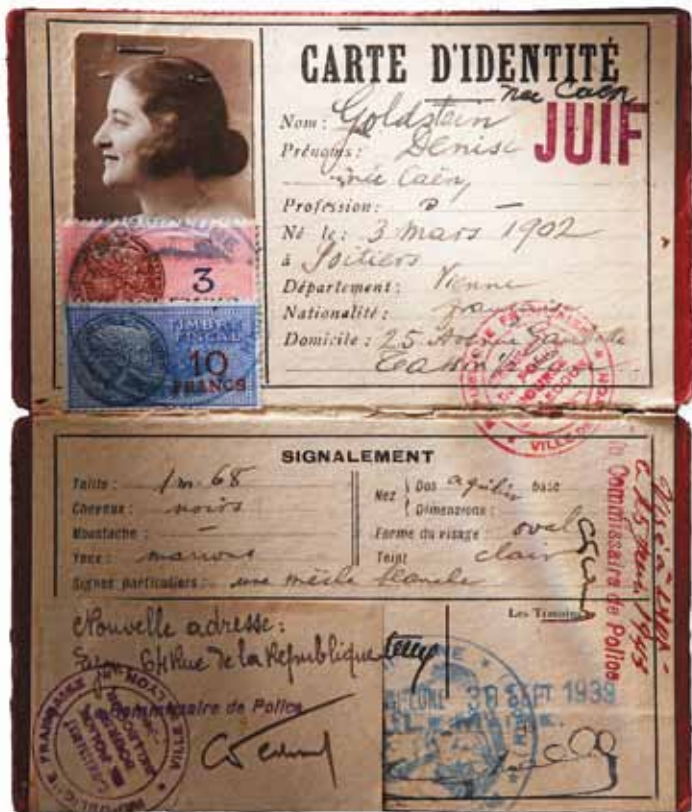 CARTE D'IDENTITÉ
née Caën
Nom : Goldstein
JUIF
Prénoms : Denise
née Caën
Profession : -
Né le : 3 mars 1902
à Poitiers
Département : Vienne
Nationalité : française
Domicile : 25 Avenue
3
TIMBRE
FISCAL
10
FRANCS
VILLE DE
SIGNALEMENT
Taille : 1m68
Cheveux : noirs
Moustache : -
Yeux : marrons
Signes particuliers : une mèche blanche
Nez Dos aquilin base
Dimensions :
Forme du visage : oval
Teint clair
Commissaire de Police
Nouvelle adresse :
64 Rue de la République
Commissaire de Police
Les Témoins
SEPT 1939